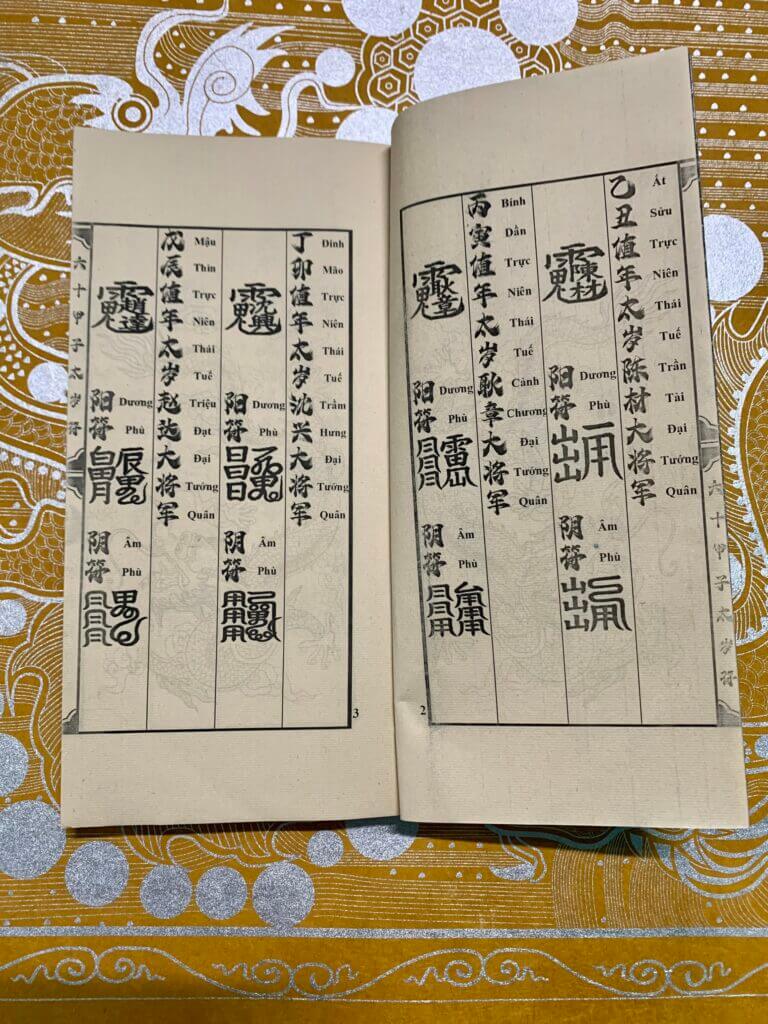 六十甲子太岁符
乙丑值年太岁陈材大将军
Ất Sửu Trực Niên Thái Tuế Trần Tài Đại Tướng Quân
阳符
Dương Phù
阴符
Âm Phù
丙寅值年太岁耿章大将军
Bính Dần Trực Niên Thái Tuế Cảnh Chương Đại Tướng Quân
阳符
Dương Phù
阴符
Âm Phù
2
丁卯值年太岁沈兴大将军
Đinh Mão Trực Niên Thái Tuế Trầm Hưng Đại Tướng Quân
阳符
Dương Phù
阴符
Âm Phù
戊辰值年太岁赵达大将军
Mậu Thìn Trực Niên Thái Tuế Triệu Đạt Đại Tướng Quân
阳符
Dương Phù
阴符
Âm Phù
六十甲子太岁符
3